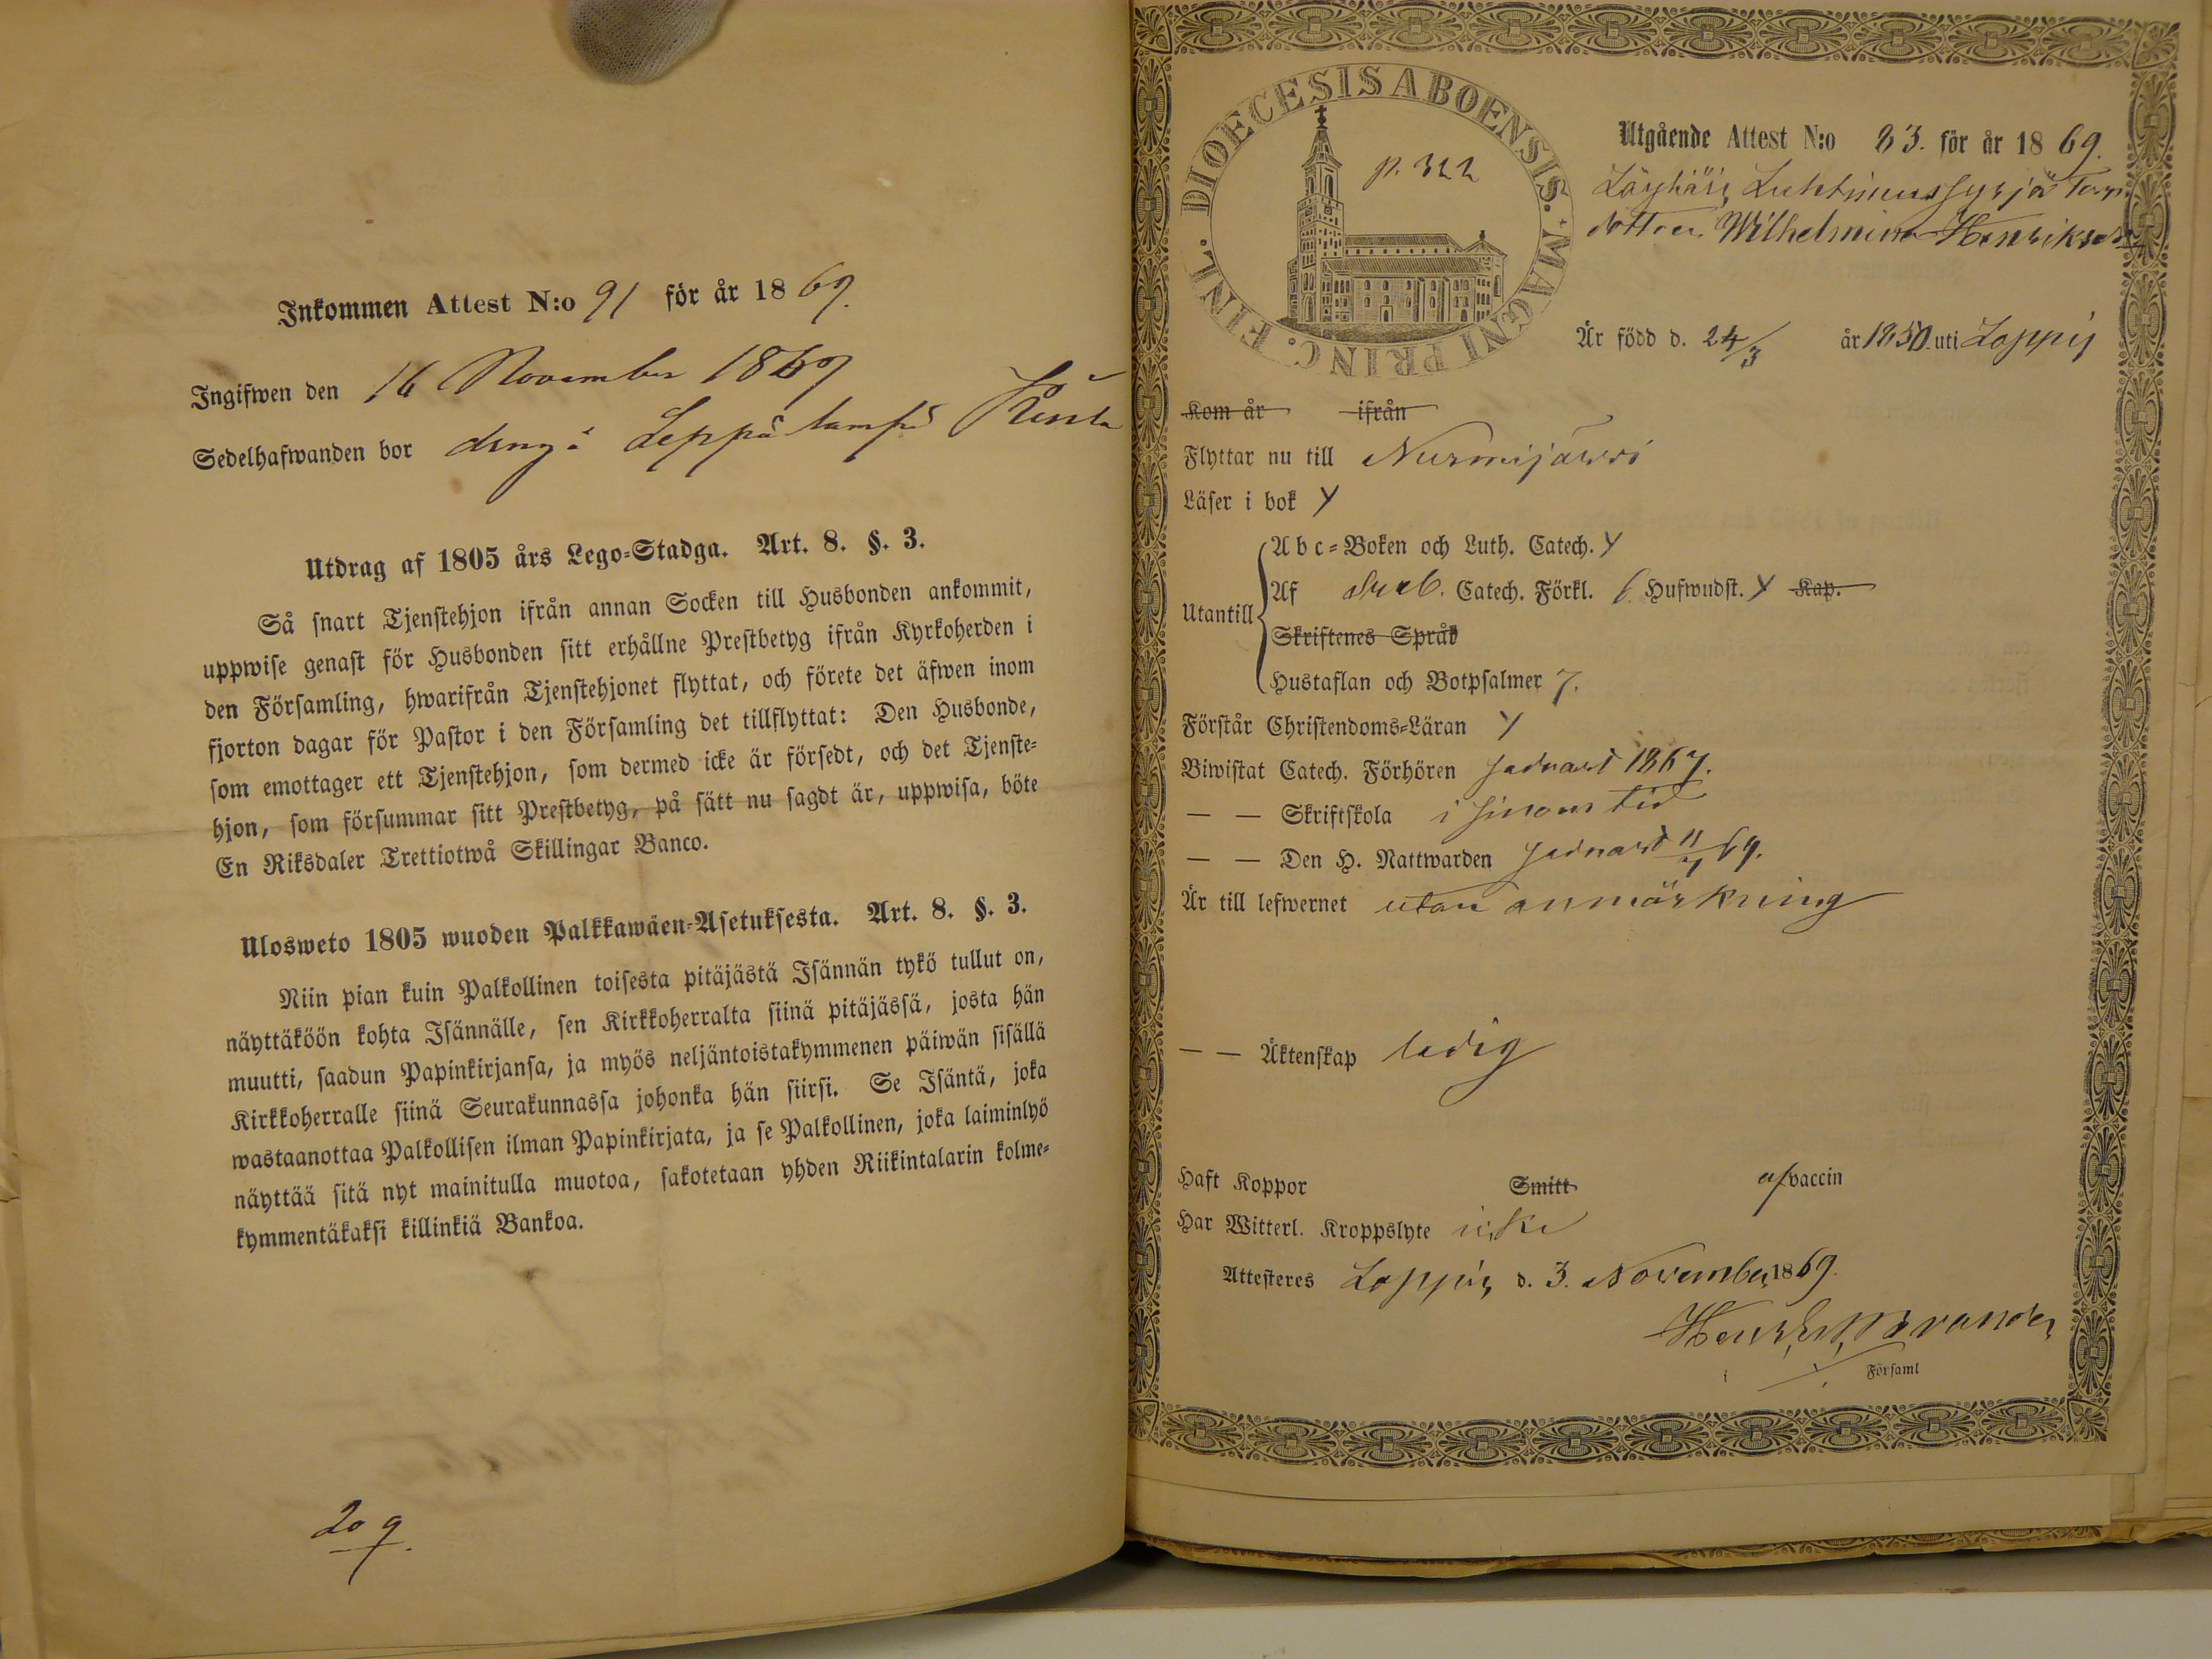 Inkommen Attest N:o 91 för år 1869.
Ingifwen den 16 November 1869
Sedelhafwanden bor dräng å Leppälampi
Utdrag af 1805 års Lego-Stadga. Art. 8. §. 3.
Så snart Tjenstehjon ifrån annan Socken till Husbonden ankommit,
uppwise genast för Husbonden sitt erhållne Prestbetyg ifrån Kyrkoherden i
den Församling, hwarifrån Tjenstehjonet flyttat, och förete det äfwen inom
fjorton dagar för Pastor i den Församling det tillflyttat: Den Husbonde,
som emottager ett Tjenstehjon, som dermed icke är försedt, och det Tjenste-
hjon, som försummar sitt Prestbetyg, på sätt nu sagdt är, uppwisa, böte
En Riksdaler Trettiotwå Skillingar Banco.
Ulosweto 1805 wuoden Palkkawäen-Asetuksesta. Art. 8. §. 3.
Niin pian kuin Palkollinen toisesta pitäjästä Isännän tykö tullut on,
näyttäköön kohta Isännälle, sen Kirkkoherralta siinä pitäjässä, josta hän
muutti, saadun Papinkirjansa, ja myös neljäntoistakymmenen päiwän sisällä
Kirkkoherralle siinä Seurakunnassa johonka hän siirsi. Se Isäntä, joka
wastaanottaa Palkollisen ilman Papinkirjata, ja se Palkollinen, joka laiminlyö
näyttää sitä nyt mainitulla muotoa, sakotetaan yhden Riikintalarin kolme-
kymmentäkaksi killinkiä Bankoa.
209.
DIOECESIS ABOENSIS. MAGNI PRINC. FINL.
p. 322
Utgående Attest N:o 83. för år 1869.
Läyliäis, Luhtimussyrjä Torp
dottren Wilhelmina Henriksd
Är född d. 24/3 år 1850. uti Loppis
Kom år ifrån
Flyttar nu till Nurmijärwi
Läser i bok Y
Utantill
A b c-Boken och Luth. Catech. Y
Af Sveb. Catech. Förkl. 6 Hufwudst. Y Kap.
Skriftenes Språk
Hustaflan och Botpsalmer 7.
Förstår Christendoms-Läran Y
Biwistat Catech. Förhören jadnast 1867.
— — Skriftskola i sinom tid
— — Den H. Nattwarden jadnast 11/7 69.
Är till lefwernet utan anmärkning
— — Äktenskap ledig
Haft Koppor Smitt af vaccin
Har Witterl. Kroppslyte icke
Attesteres Loppis, d. 3. November 1869.
i Församl